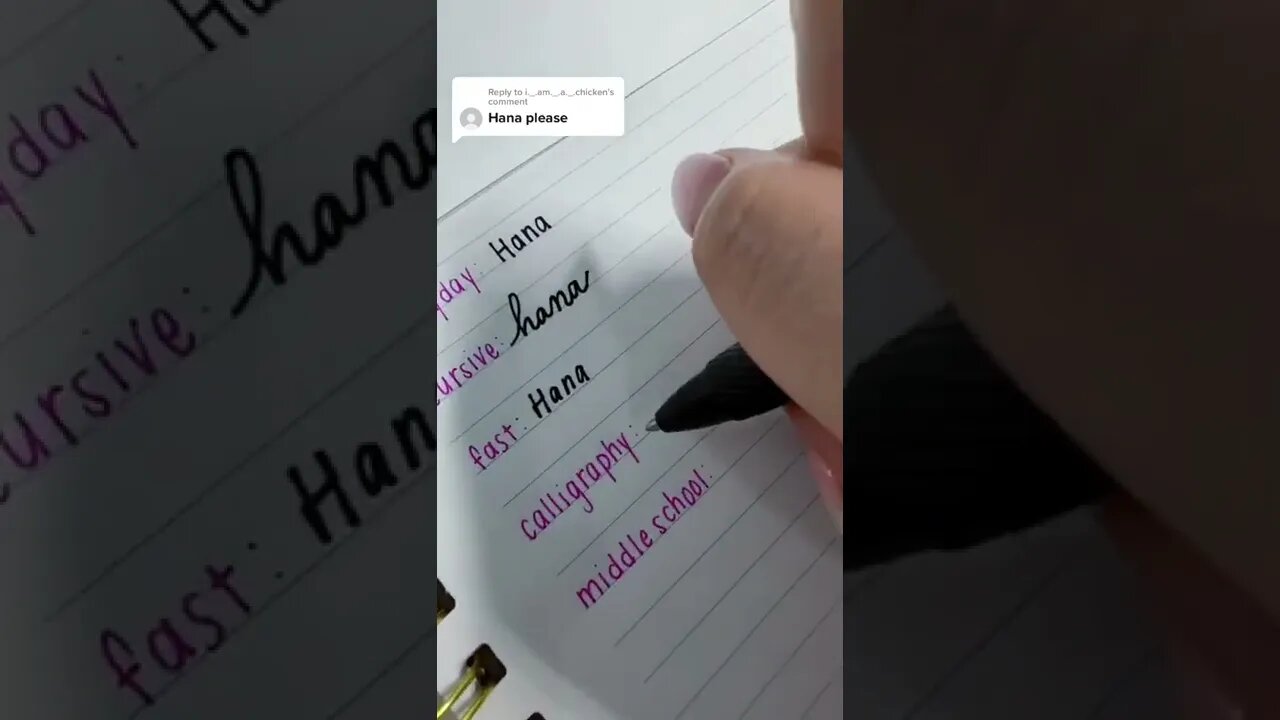 Reply to i._.am._.a._.chicken's
comment
Hana please
day: Hana
ursive: hana
fast: Hana
calligraphy:
middle school: